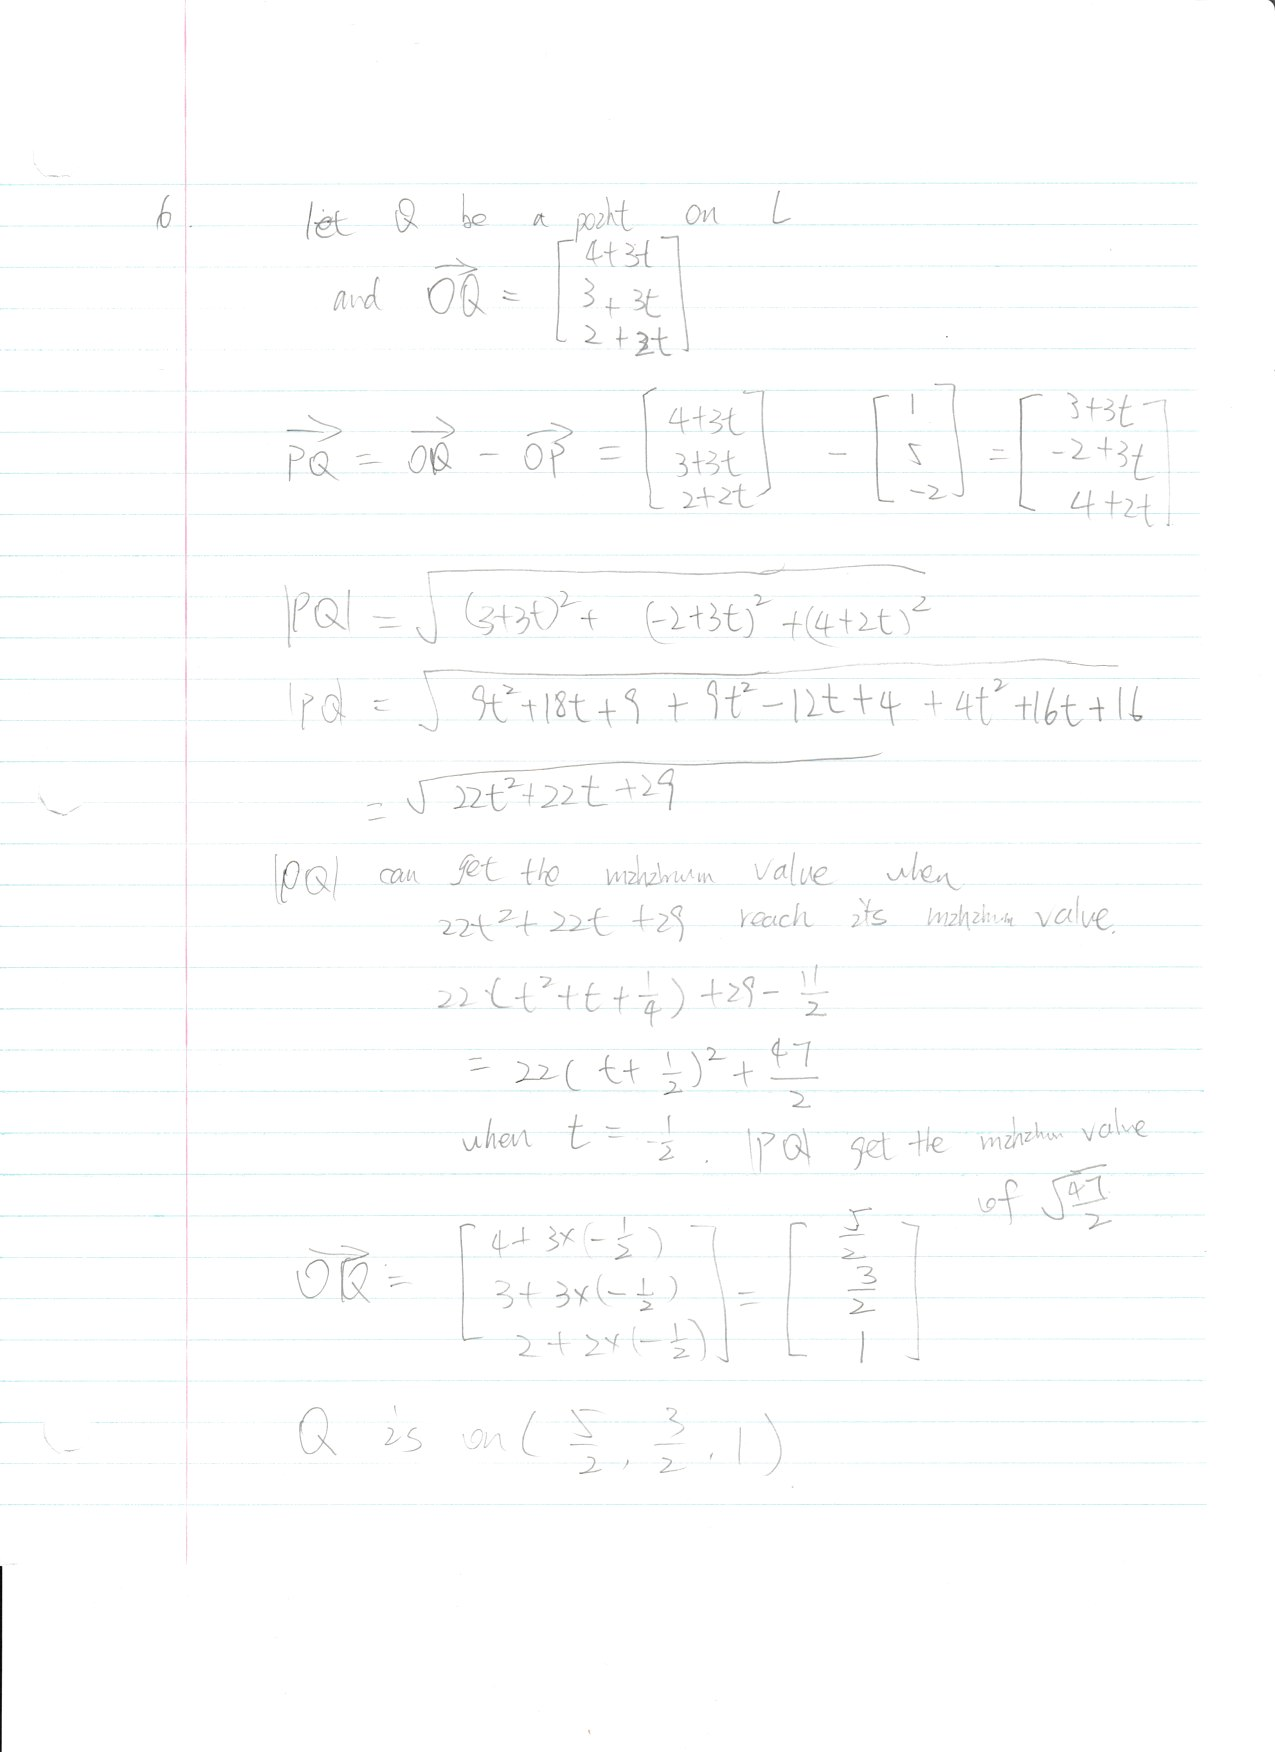 6. let Q be a point on L
and \overrightarrow{OQ} = \begin{bmatrix} 4+3t \\ 3+3t \\ 2+2t \end{bmatrix}
\overrightarrow{PQ} = \overrightarrow{OQ} - \overrightarrow{OP} = \begin{bmatrix} 4+3t \\ 3+3t \\ 2+2t \end{bmatrix} - \begin{bmatrix} 1 \\ 5 \\ -2 \end{bmatrix} = \begin{bmatrix} 3+3t \\ -2+3t \\ 4+2t \end{bmatrix}
|PQ| = \sqrt{(3+3t)^2 + (-2+3t)^2 + (4+2t)^2}
|PQ| = \sqrt{9t^2+18t+9 + 9t^2-12t+4 + 4t^2+16t+16}
= \sqrt{22t^2+22t+29}
|PQ| can get the minimum value when
22t^2+22t+29 reach its minimum value.
22(t^2+t+\frac{1}{4}) +29 - \frac{11}{2}
= 22(t+\frac{1}{2})^2 + \frac{47}{2}
when t = -\frac{1}{2}. |PQ| get the minimum value
of \sqrt{\frac{47}{2}}
\overrightarrow{OQ} = \begin{bmatrix} 4+3×(-\frac{1}{2}) \\ 3+3×(-\frac{1}{2}) \\ 2+2×(-\frac{1}{2}) \end{bmatrix} = \begin{bmatrix} \frac{5}{2} \\ \frac{3}{2} \\ 1 \end{bmatrix}
Q is on (\frac{5}{2}, \frac{3}{2}, 1)